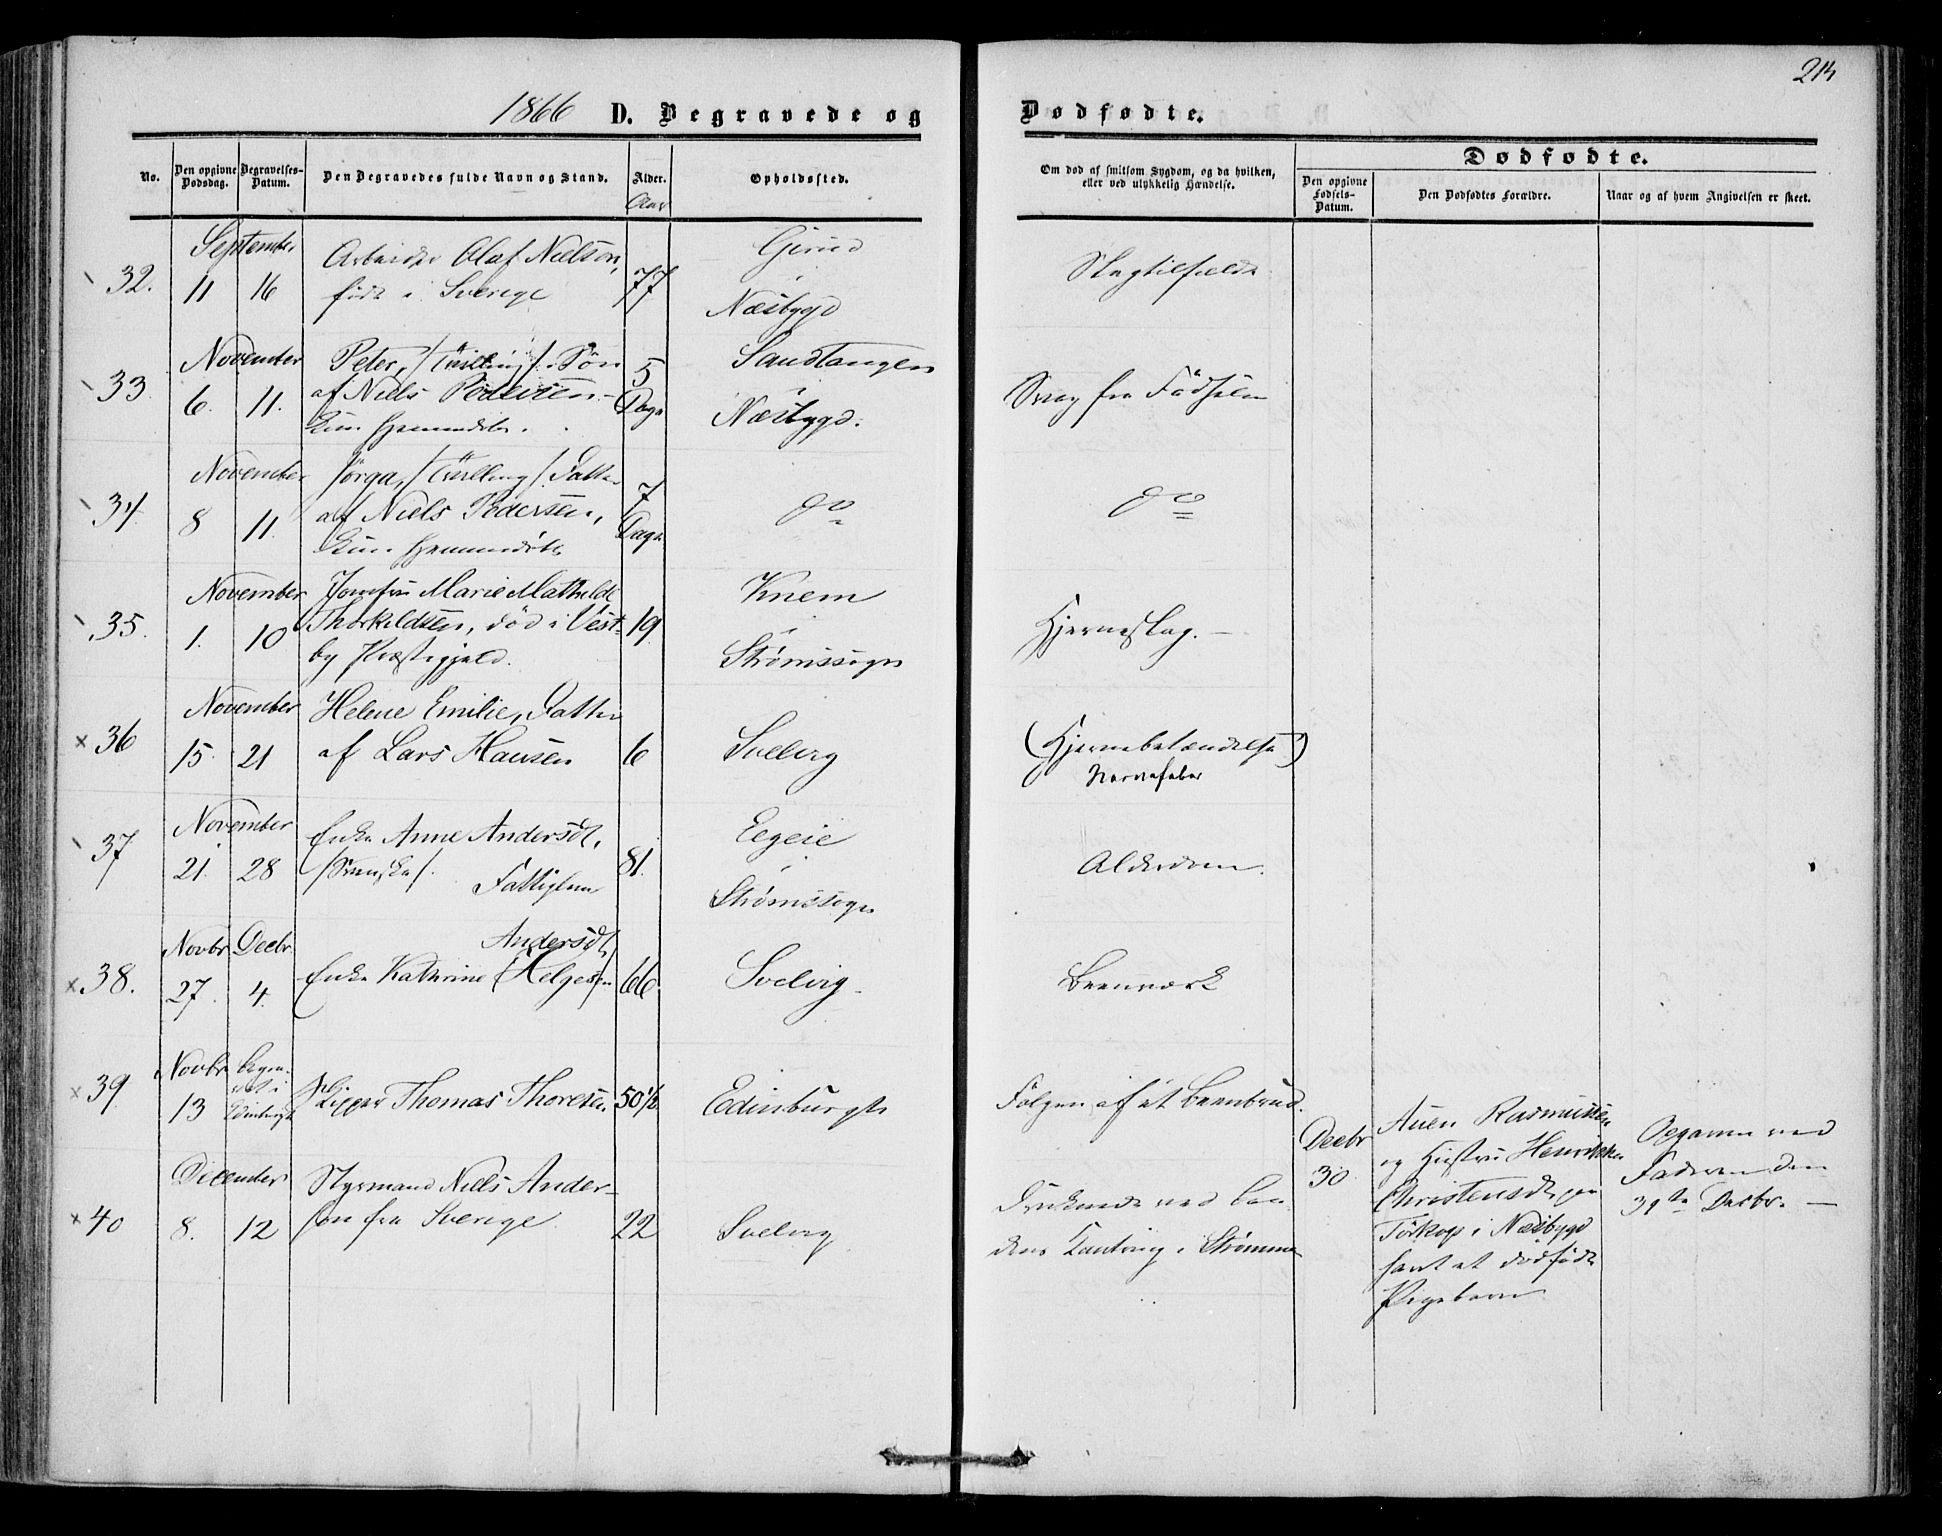 1866 D. Begravede og Dødfødte.
No. Den opgivne Dødsdag. Begravelses-Datum. Den Begravedes fulde Navn og Stand. Alder. Opholdssted.
Om død af smitsom Sygdom, og da hvilken, eller ved ulykkelig Hændelse.
Dødfødte.
Den opgivne Fødsels-Datum. Den Dødfødtes Forældre. Naar og af hvem Angivelsen er skeet.
Aar
September
32. 11 16 Arbeider Olaf Nielsen, 77
født i Sverige
Næsbygd
Slagtilfælde
November
33 6. 11. Peter, /Tvilling/. Søn 5 Dage
af Niels Pedersen
Sandtangen
Næsbygd.
Svag fra Fødselen
November
34. 8 11. Jørga, /Tvilling/. Datter 7 Dage
af Niels Pedersen,
do
do
November
35. 1. 10 Jomfru Marie Mathilde 19
Thorkildsen, død i Vest-
by Præstegjeld.
Knem
Strømssogn
Hjerneslag. –
November
36 15. 21 Helene Emilie, Datter 6
af Lars Hansen
Svelvig
(Hjernebetændelse)
Nervefeber
November
37 21. 28 Enke Anne Andersdt. 81.
/Svenske/. Fattiglem
Eegeie
Strømssogn
Alderdom.
Novbr Decbr
38. 27. 4. Enke Kathrine (Helgesen 66
Andersdt,
Svelvig
Novbr
39 13 begravet i Edinburgh Skipper Thomas Thoresen 50½
Edinburgh
Følgen af et Beenbrud.
December
40 8. 12 Styrmand Niels Ander- 22
son fra Sverige
Svelvig
Druknede ved
i Strømmen
Decbr
30
Rasmussen
og Hustru Henrikke
Christensdt paa
Tørkop i Næsbygd
samt et dødfødt
Pigebarn
Opgaven ved
Faderen den
31te Decbr. –